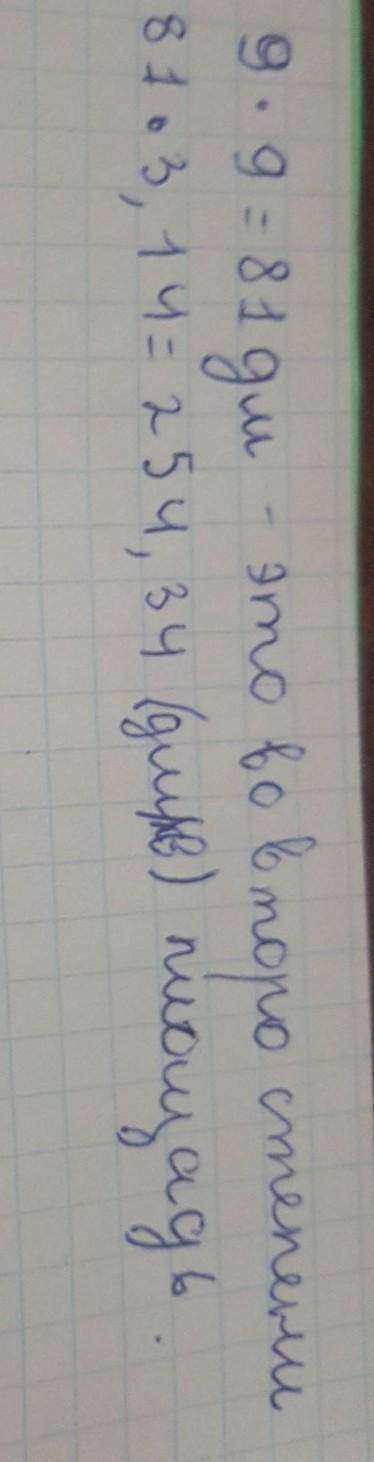 9 · 9 = 81 дм - это во второ степени
81 · 3,14 = 254,34 (дм кв) площадь.